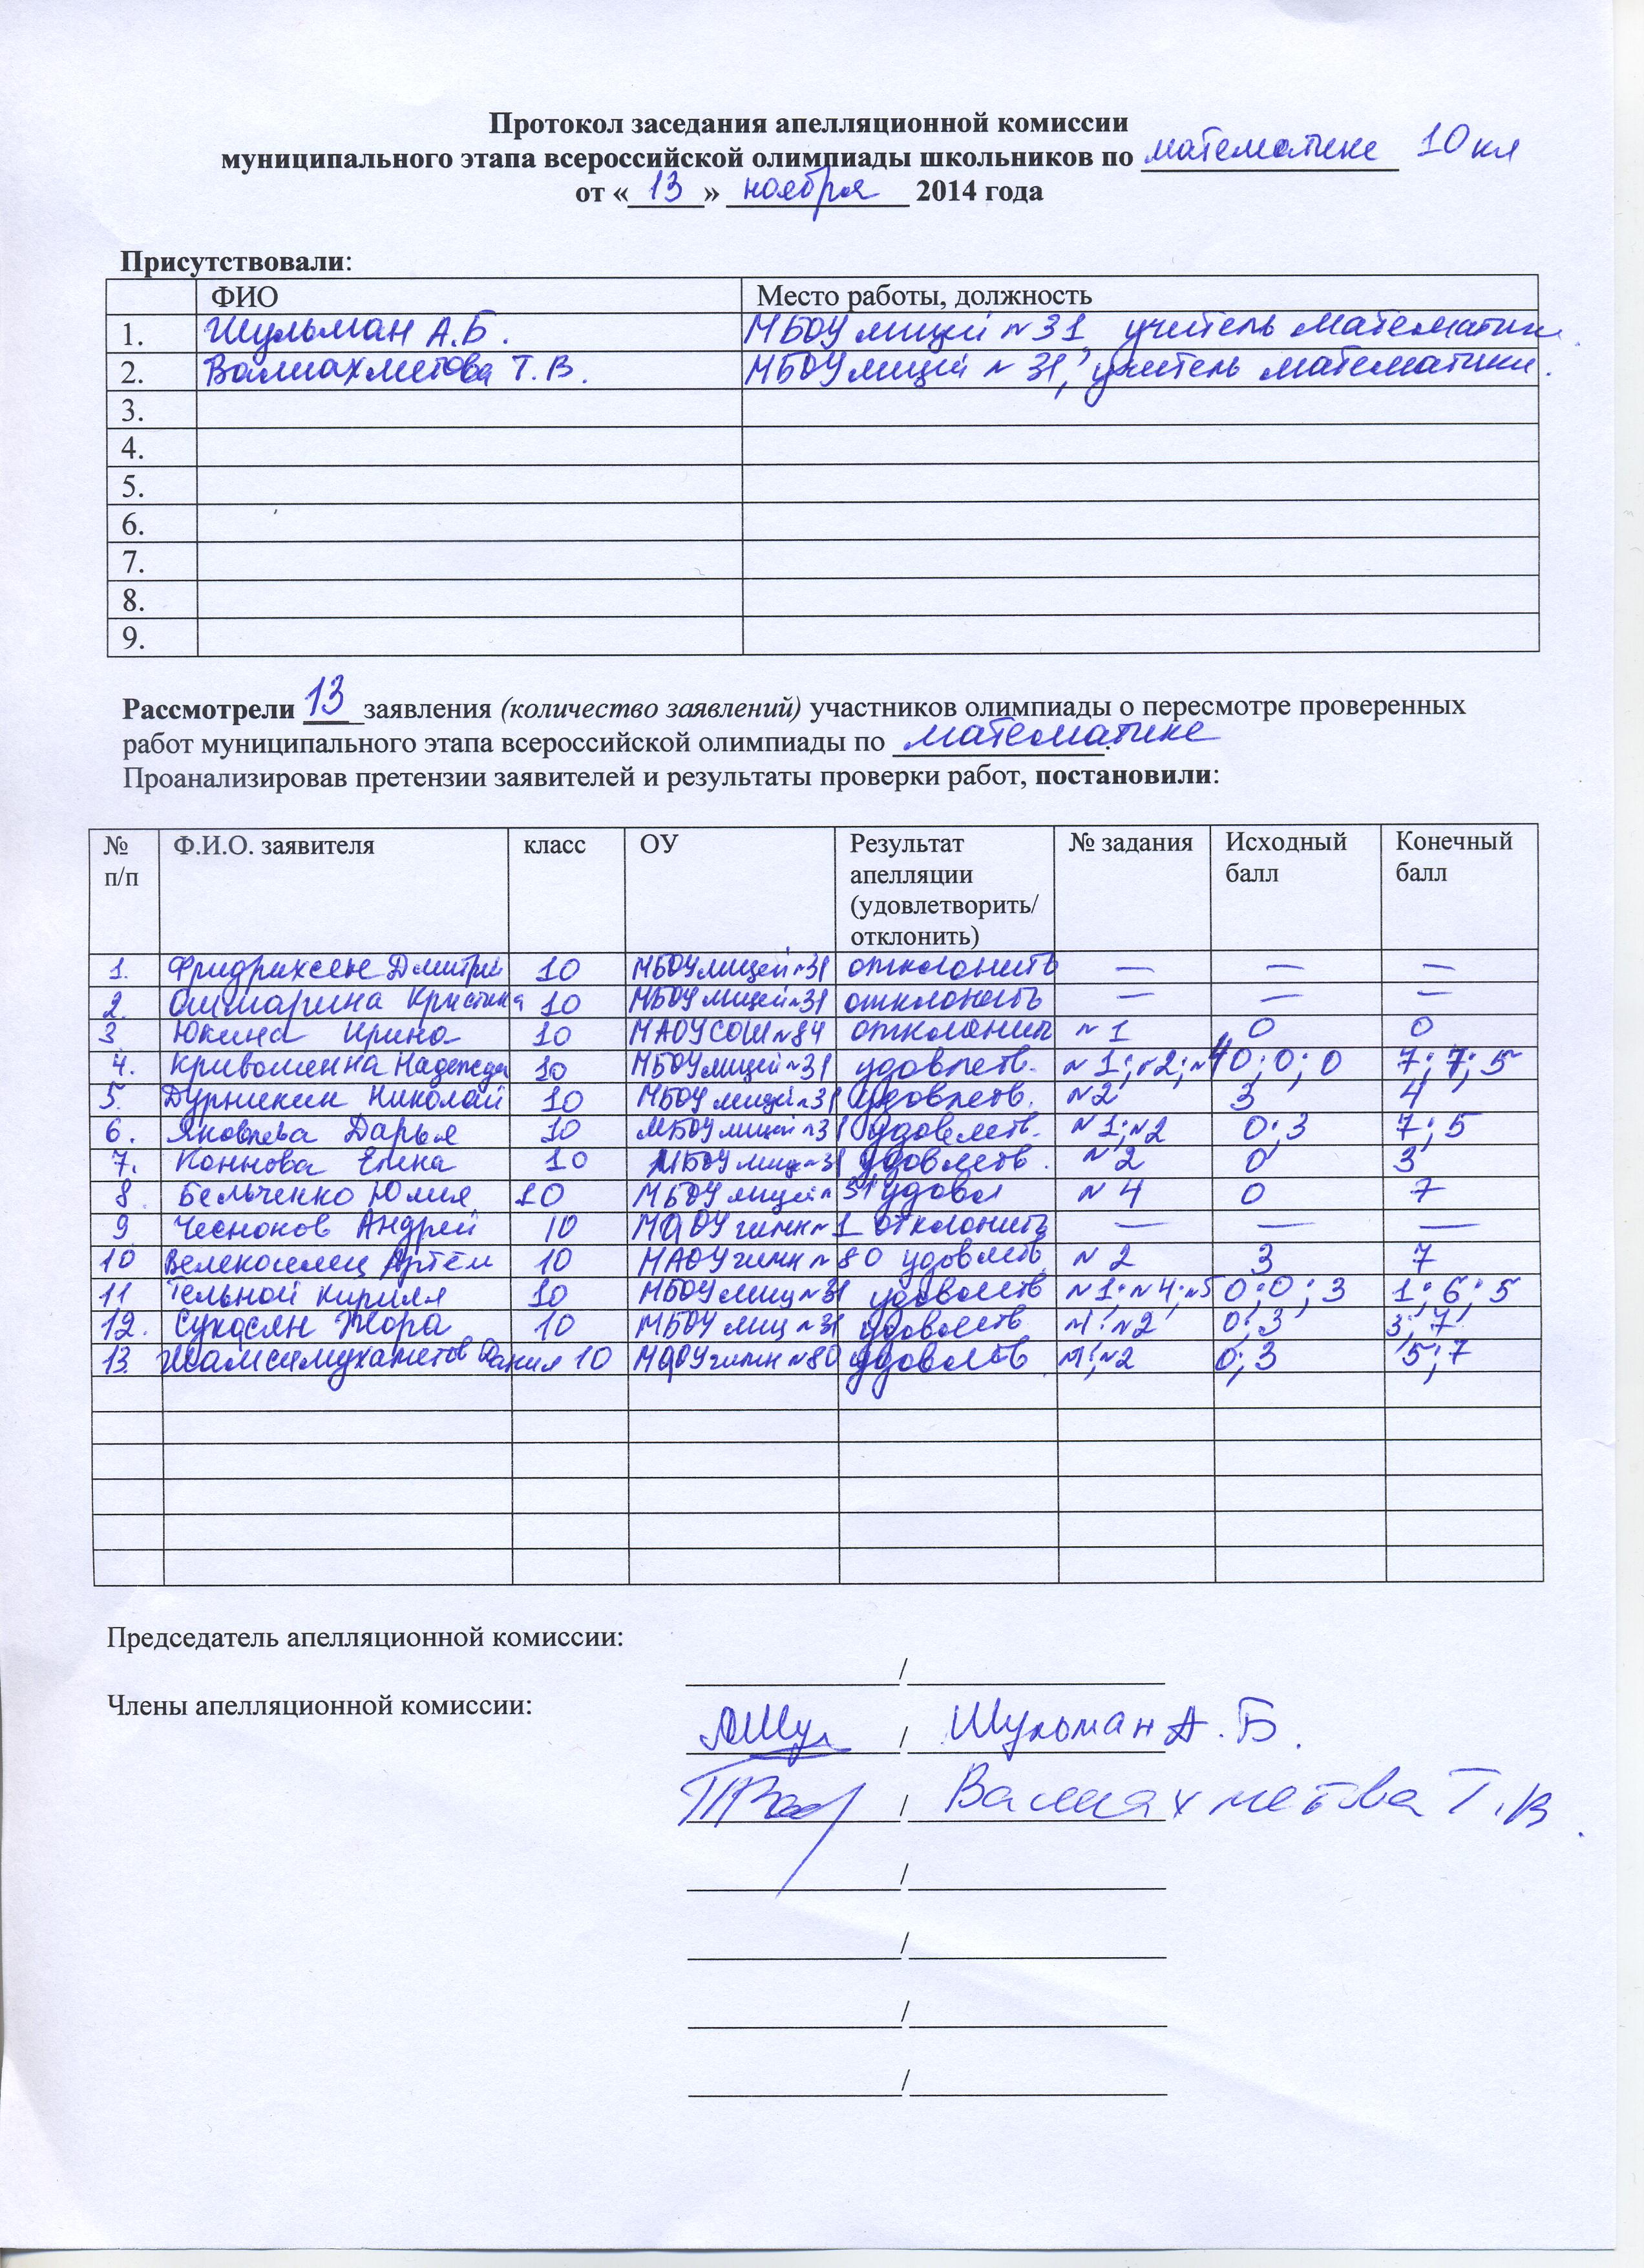 Протокол заседания апелляционной комиссии
муниципального этапа всероссийской олимпиады школьников по математике 10 кл
от «13» ноября 2014 года
Присутствовали:
ФИО Место работы, должность
1. Шульман А.Б. МБОУ лицей №31 учитель математики
2. Валиахметова Т.В. МБОУ лицей №31, учитель математики.
3.
4.
5.
6.
7.
8.
9.
Рассмотрели 13 заявления (количество заявлений) участников олимпиады о пересмотре проверенных
работ муниципального этапа всероссийской олимпиады по математике.
Проанализировав претензии заявителей и результаты проверки работ, постановили:
№ п/п Ф.И.О. заявителя класс ОУ Результат апелляции (удовлетворить/ отклонить) № задания Исходный балл Конечный балл
1. Фридрихсен Дмитрий 10 МБОУ лицей №31 отклонить — — —
2. Ошмарина Кристина 10 МБОУ лицей №31 отклонить — — —
3 Юкина Ирина 10 МАОУ СОШ №84 отклонить №1 0 0
4. Кривошеина Надежда 10 МБОУ лицей №31 удовлетв. №1; №2; №4 0; 0; 0 7; 7; 5
5. Дурникин Николай 10 МБОУ лицей №31 удовлетв. №2 3 4
6. Яковлева Дарья 10 МБОУ лицей №31 удовлетв. №1; №2 0; 3 7; 5
7. Коннова Елена 10 МБОУ лиц №31 удовлетв. №2 0 3
8. Бельченко Юлия 10 МБОУ лицей №31 удовл №4 0 7
9 Чесноков Андрей 10 МАОУ гимн №1 отклонить — — —
10 Артём 10 МАОУ гимн №80 удовлетв. №2 3 7
11 Тельной Кирилл 10 МБОУ лиц №31 удовлетв №1; №4; №5 0; 0; 3 1; 6; 5
12. Сукосян Жора 10 МБОУ лиц №31 удовлетв №1; №2 0; 3 3; 7
13. Шамсимухаметов Данил 10 МАОУ гимн №80 удовлетв №1; №2 0; 3 5; 7
Председатель апелляционной комиссии:
/
Члены апелляционной комиссии:
/ Шульман А.Б.
/ Валиахметова Т.В.
/
/
/
/